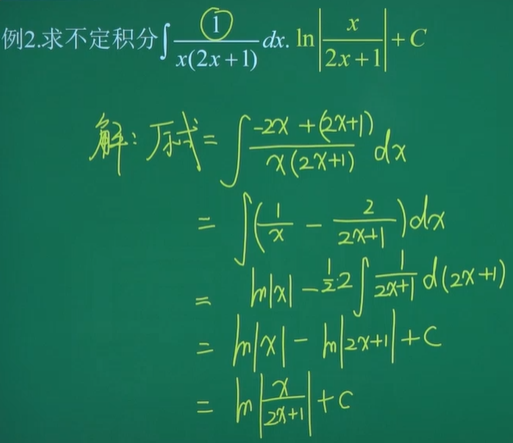 例2.求不定积分∫ 1/(x(2x+1)) dx. ln|x/(2x+1)|+C
解: 原式 = ∫ (-2x+(2x+1))/(x(2x+1)) dx
= ∫(1/x - 2/(2x+1))dx
= ln|x| - 1/2·2∫ 1/(2x+1) d(2x+1)
= ln|x| - ln|2x+1|+C
= ln|x/(2x+1)|+C